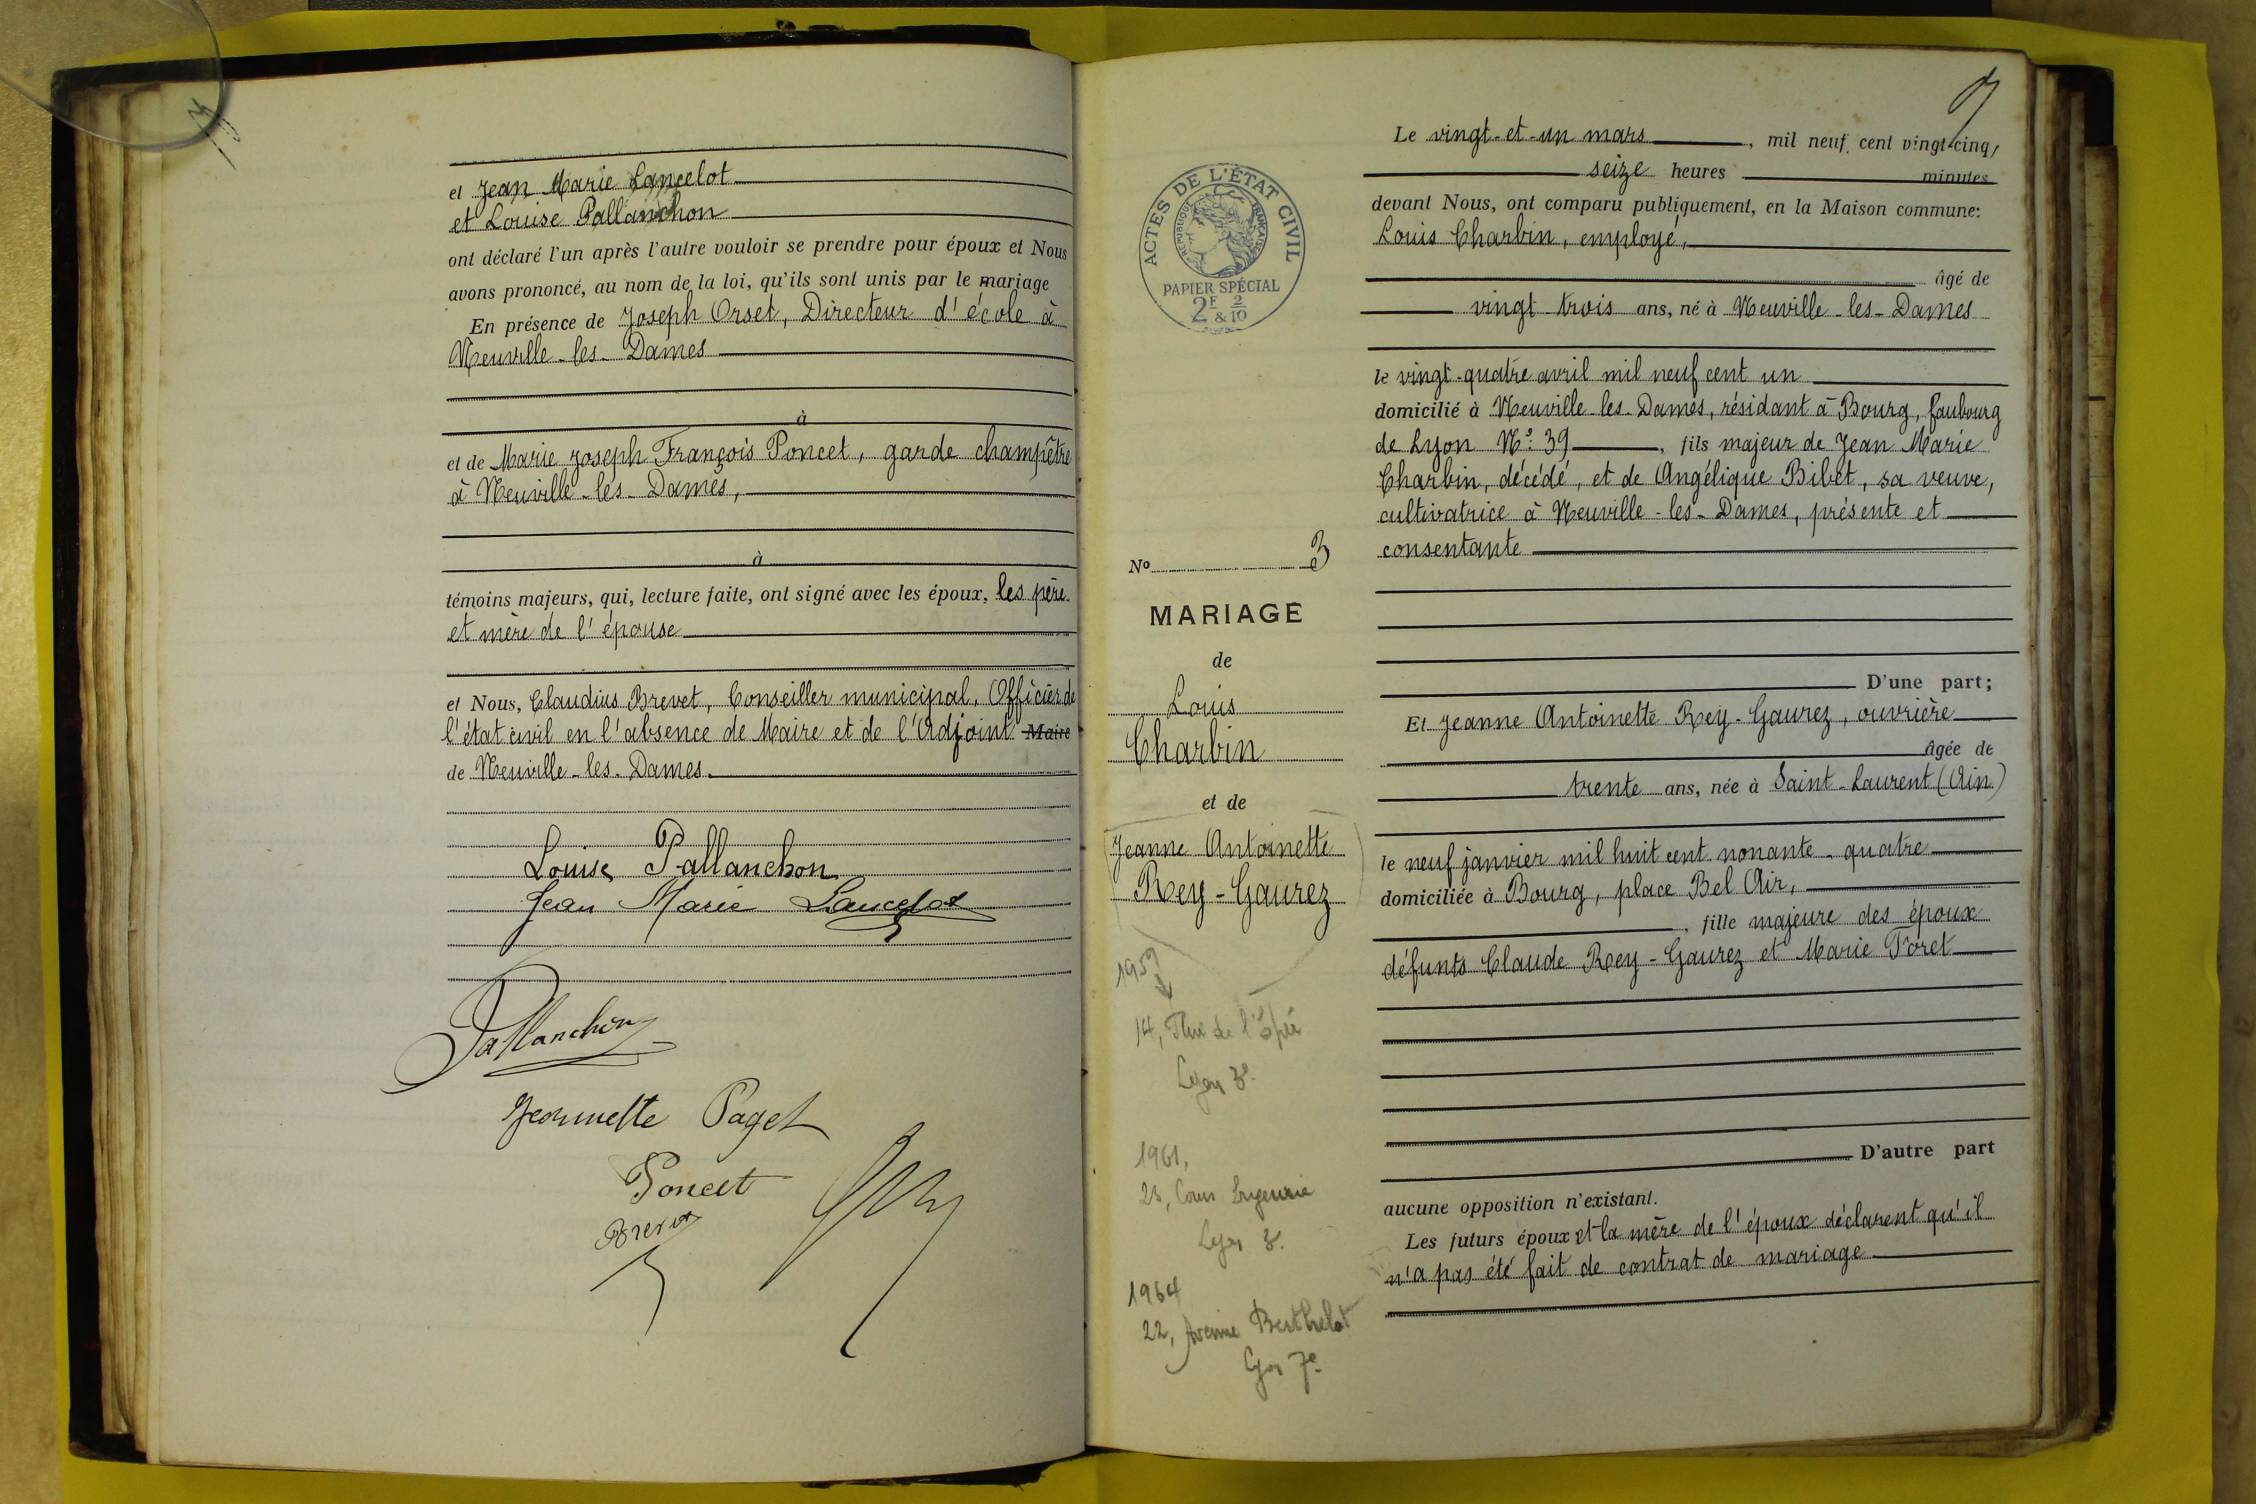 et Jean Marie Lancelot
et Louise Pallanchon
ont déclaré l'un après l'autre vouloir se prendre pour époux et Nous
avons prononcé, au nom de la loi, qu'ils sont unis par le mariage
En présence de Joseph Orset, Directeur d'école à
Neuville-les-Dames
à
et de Marie Joseph François Poncet, garde champêtre
à Neuville-les-Dames,
à
témoins majeurs, qui, lecture faite, ont signé avec les époux, les père
et mère de l'épouse
et Nous, Claudius Brevet, Conseiller municipal, Officier de
l'état civil en l'absence de Maire et de l'Adjoint Maire
de Neuville-les-Dames.
Louise Pallanchon
Jean Marie Lancelot
Pallanchon
Jeannette Paget
Poncet
Brevet
ACTES DE L'ÉTAT CIVIL
RÉPUBLIQUE FRANÇAISE
PAPIER SPÉCIAL
2F & 2/10
No 3
MARIAGE
de
Louis
Charbin
et de
Jeanne Antoinette
Rey-Gaurez
1959
14, Rue de l'Épée
Lyon 3e
1961,
25, Cours
Lyon 3.
1964
22, Avenue Berthelot
Lyon 7e
Le vingt-et-un mars, mil neuf cent vingt-cinq,
seize heures minutes
devant Nous, ont comparu publiquement, en la Maison commune:
Louis Charbin, employé,
âgé de
vingt-trois ans, né à Neuville-les-Dames
le vingt-quatre avril mil neuf cent un
domicilié à Neuville-les-Dames, résidant à Bourg, faubourg
de Lyon No: 39, fils majeur de Jean Marie
Charbin, décédé, et de Angélique Bibet, sa veuve,
cultivatrice à Neuville-les-Dames, présente et
consentante
D'une part;
Et Jeanne Antoinette Rey-Gaurez, ouvrière
âgée de
trente ans, née à Saint-Laurent (Ain)
le neuf janvier mil huit cent nonante-quatre
domiciliée à Bourg, place Bel Air,
, fille majeure des époux
défunts Claude Rey-Gaurez et Marie Foret
D'autre part
aucune opposition n'existant.
Les futurs époux et la mère de l'époux déclarent qu'il
n'a pas été fait de contrat de mariage